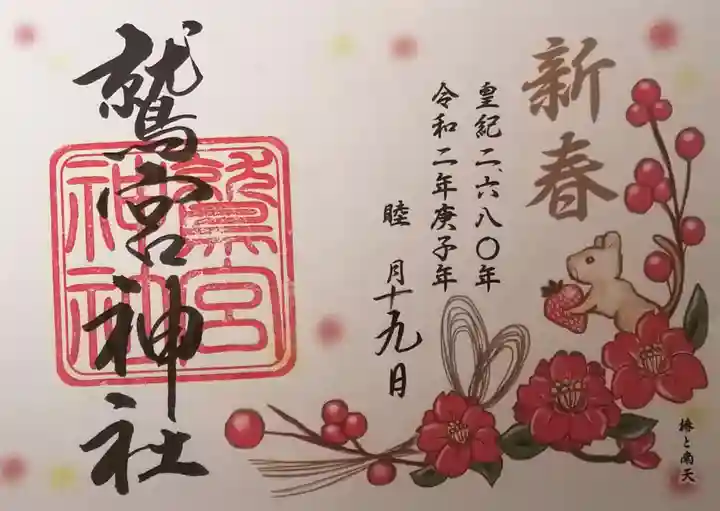 新春
皇紀二、六八〇年
令和二年庚子年
睦月十九日
椿と南天
鷲宮神社
鷲宮
神社